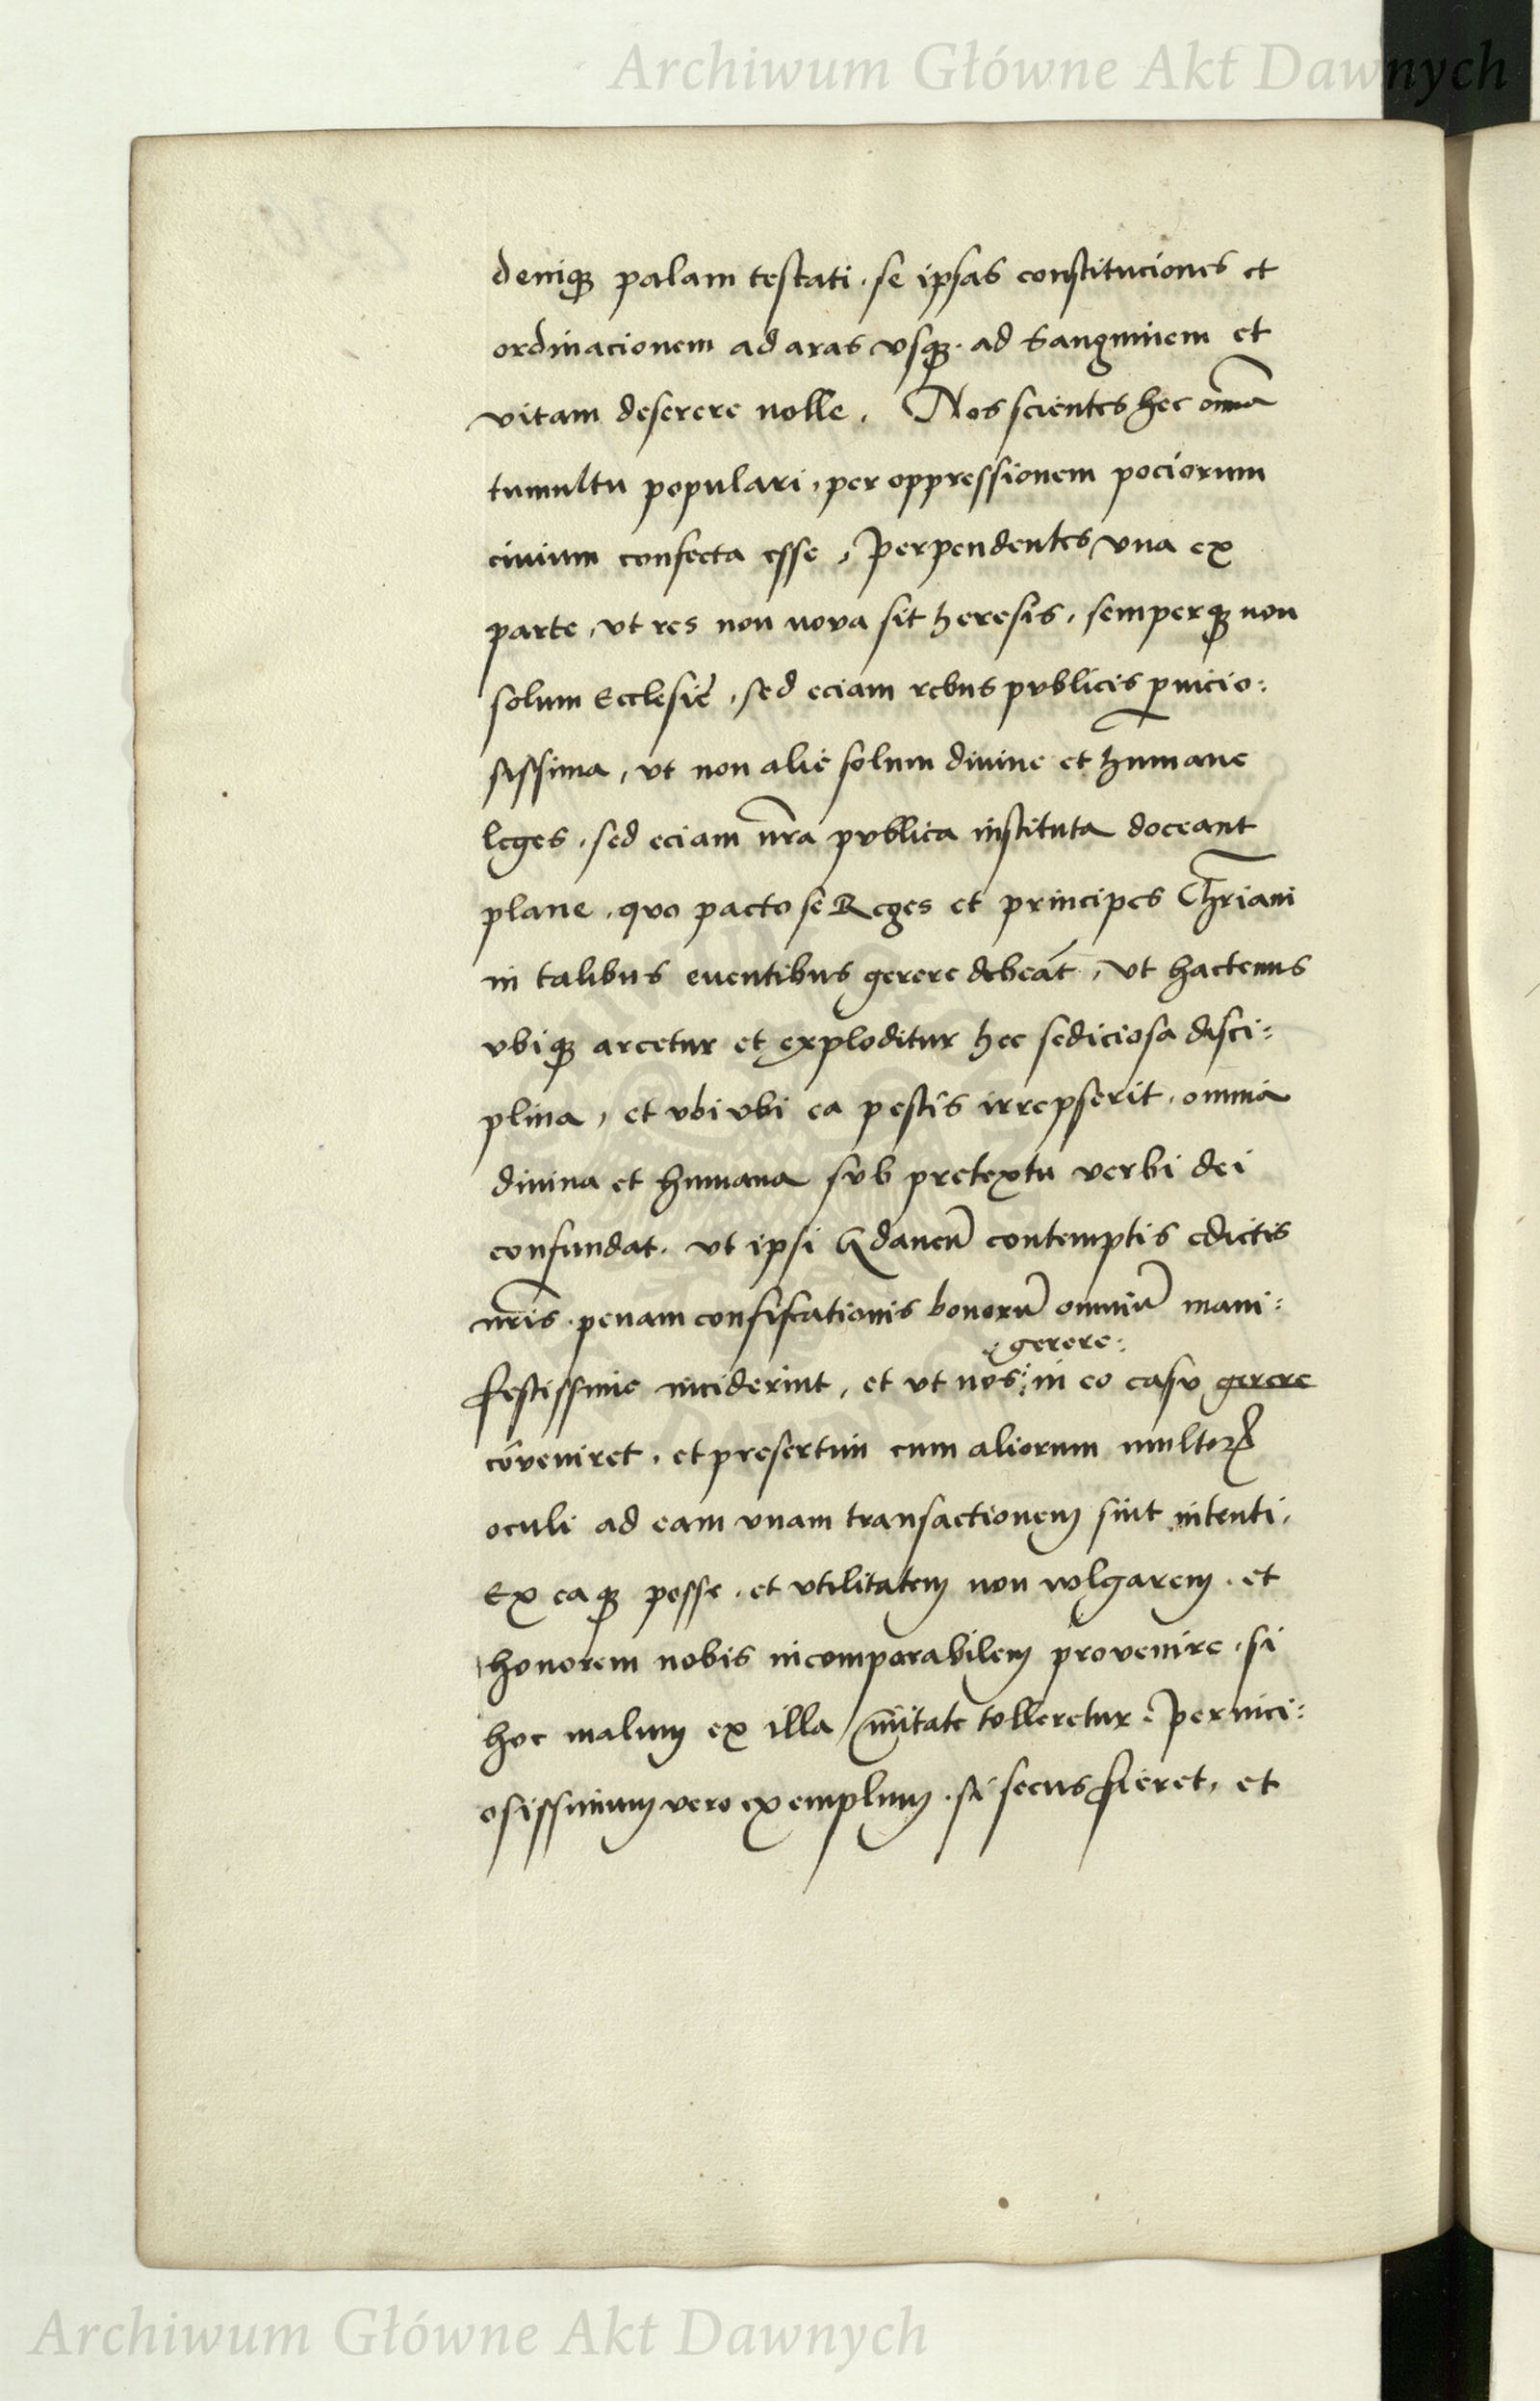 Archiwum Główne Akt Dawnych
deniqꝫ palam testati . se ipsas constituciones et
ordinacionem ad aras vsqꝫ . ad Sanguinem et
vitam deserere nolle . Nos scientes hec om̄a
tumultu populari , per oppressionem pociorum
ciuium confecta esse , Perpendentes vna ex
parte , vt res non nova sit heresis , semperqꝫ non
solum Ecclesie , sed eciam rebus pvblicis p̱nicio:
sissima , vt non alie solum diuine et humane
leges . sed eciam nr̄a pvblica instituta doceant
plane . quo pacto se Reges et principes Chr̄iani
in talibus euentibus gerere debeāt , vt hactenus
vbiqꝫ arcetur et exploditur hec sediciosa disci:
plina , et vbi vbi ea pestis irrepserit . omnia
diuina et humana svb pretextu verbi dei
confundat . vt ipsi Gdaneñ contemptis edictis
nr̄is . penam confiscationis bonorū omniū mani:
gerere:
festissime inciderint , et vt nos in eo casv gerere
cōveniret . et presertim cum aliorum multoꝝ
oculi ad eam vnam transactionem sint intenti .
Ex eaqꝫ posse . et vtilitatem non volgarem . et
honorem nobis incomparabilem provenire . si
hoc malum ex illa Cīuitate tolleretur . Pernici:
osissimum vero exemplum . si secus fieret , et
Archiwum Główne Akt Dawnych